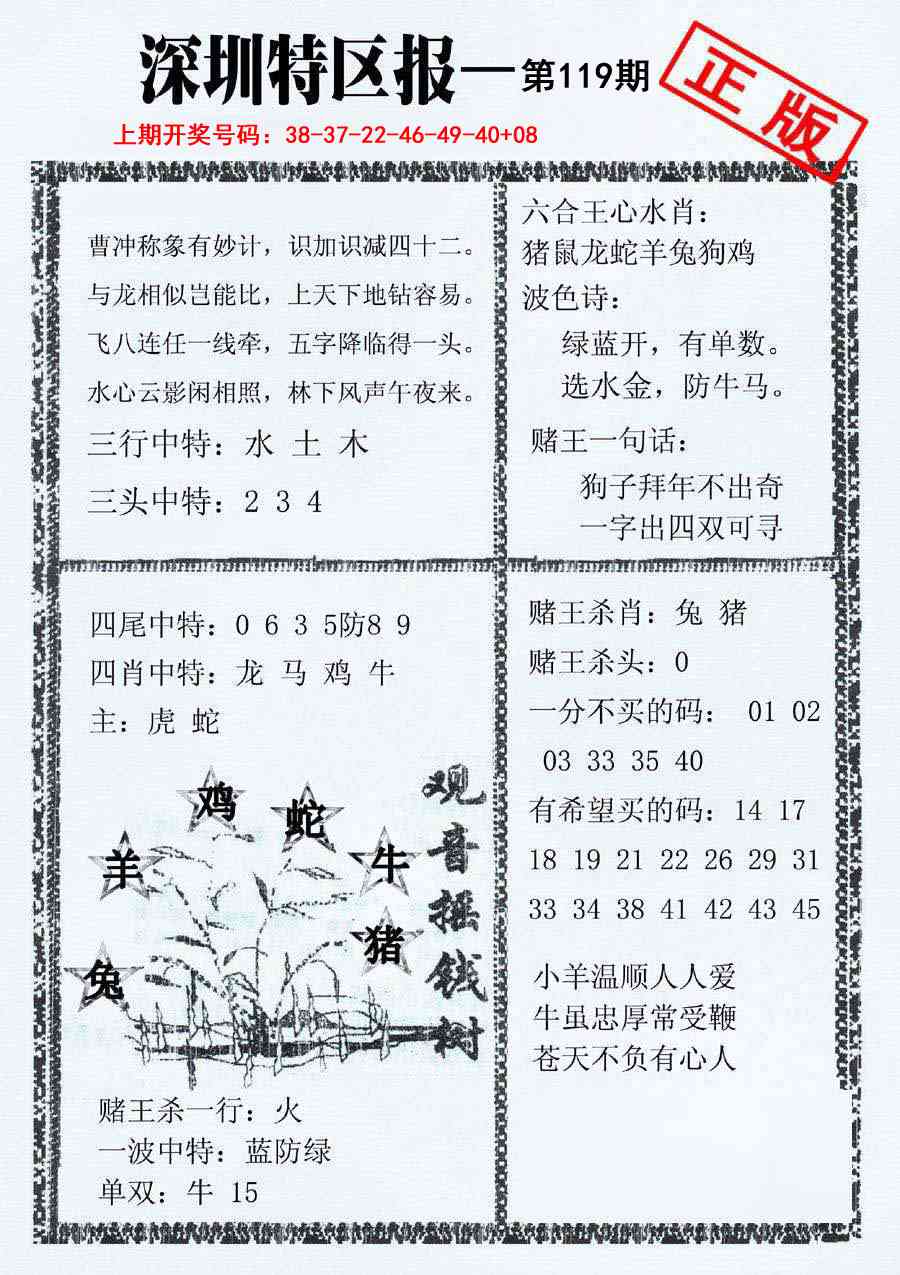 深圳特区报—第119期
正版
上期开奖号码：38-37-22-46-49-40+08
曹冲称象有妙计，识加识减四十二。
与龙相似岂能比，上天下地钻容易。
飞八连任一线牵，五字降临得一头。
水心云影闲相照，林下风声午夜来。
三行中特：水 土 木
三头中特：2 3 4
六合王心水肖：
猪鼠龙蛇羊兔狗鸡
波色诗：
绿蓝开，有单数。
选水金，防牛马。
赌王一句话：
狗子拜年不出奇
一字出四双可寻
四尾中特：0 6 3 5防8 9
四肖中特：龙 马 鸡 牛
主：虎 蛇
鸡
蛇
羊
牛
猪
兔
观音摇钱树
赌王杀一行：火
一波中特：蓝防绿
单双：牛 15
赌王杀肖：兔 猪
赌王杀头：0
一分不买的码： 01 02
03 33 35 40
有希望买的码：14 17
18 19 21 22 26 29 31
33 34 38 41 42 43 45
小羊温顺人人爱
牛虽忠厚常受鞭
苍天不负有心人